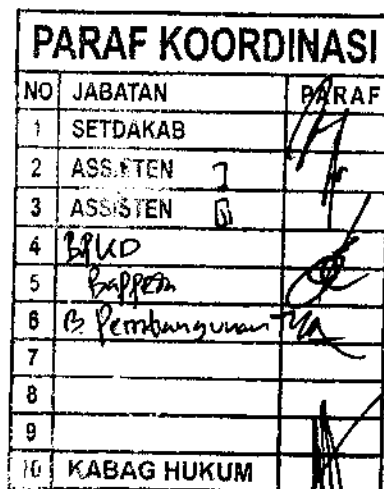 PARAF KOORDINASI
NO JABATAN PARAF
1 SETDAKAB
2 ASSISTEN I
3 ASSISTEN
4 BPKD
5 Bappeda
6 B. Pembangunan
7
8
9
10 KABAG HUKUM